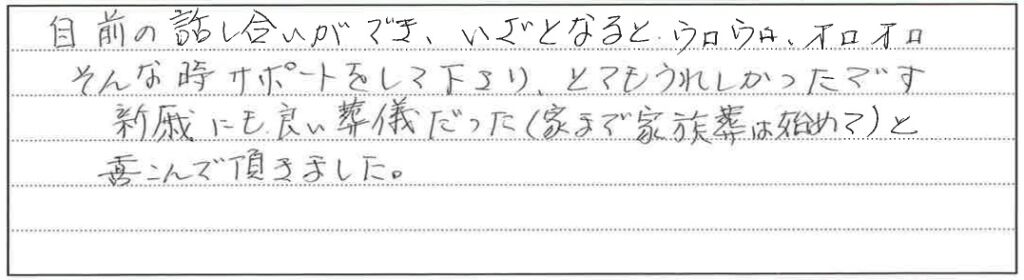 自前の話し合いができ、いざとなると、ウロウロ、オロオロ
そんな時サポートをして下さり、とてもうれしかったです
新戚にも良い葬儀だった(家まで家族葬は始めて)と
喜こんで頂きました。